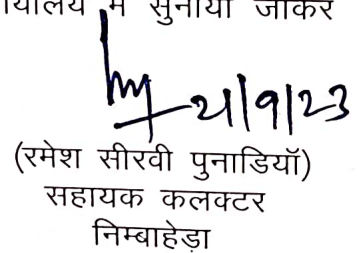 में सुनाया जाकर
21/9/23
(रमेश सीरवी पुनाडियॉ)
सहायक कलक्टर
निम्बाहेड़ा